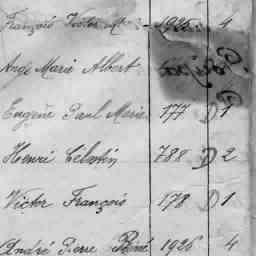 François 1926 4
Ange Marie Albert
Eugène Paul Marie 177 D 1
Henri Célestin 788 D 2
Victor François 178 D 1
André Pierre 1926 4